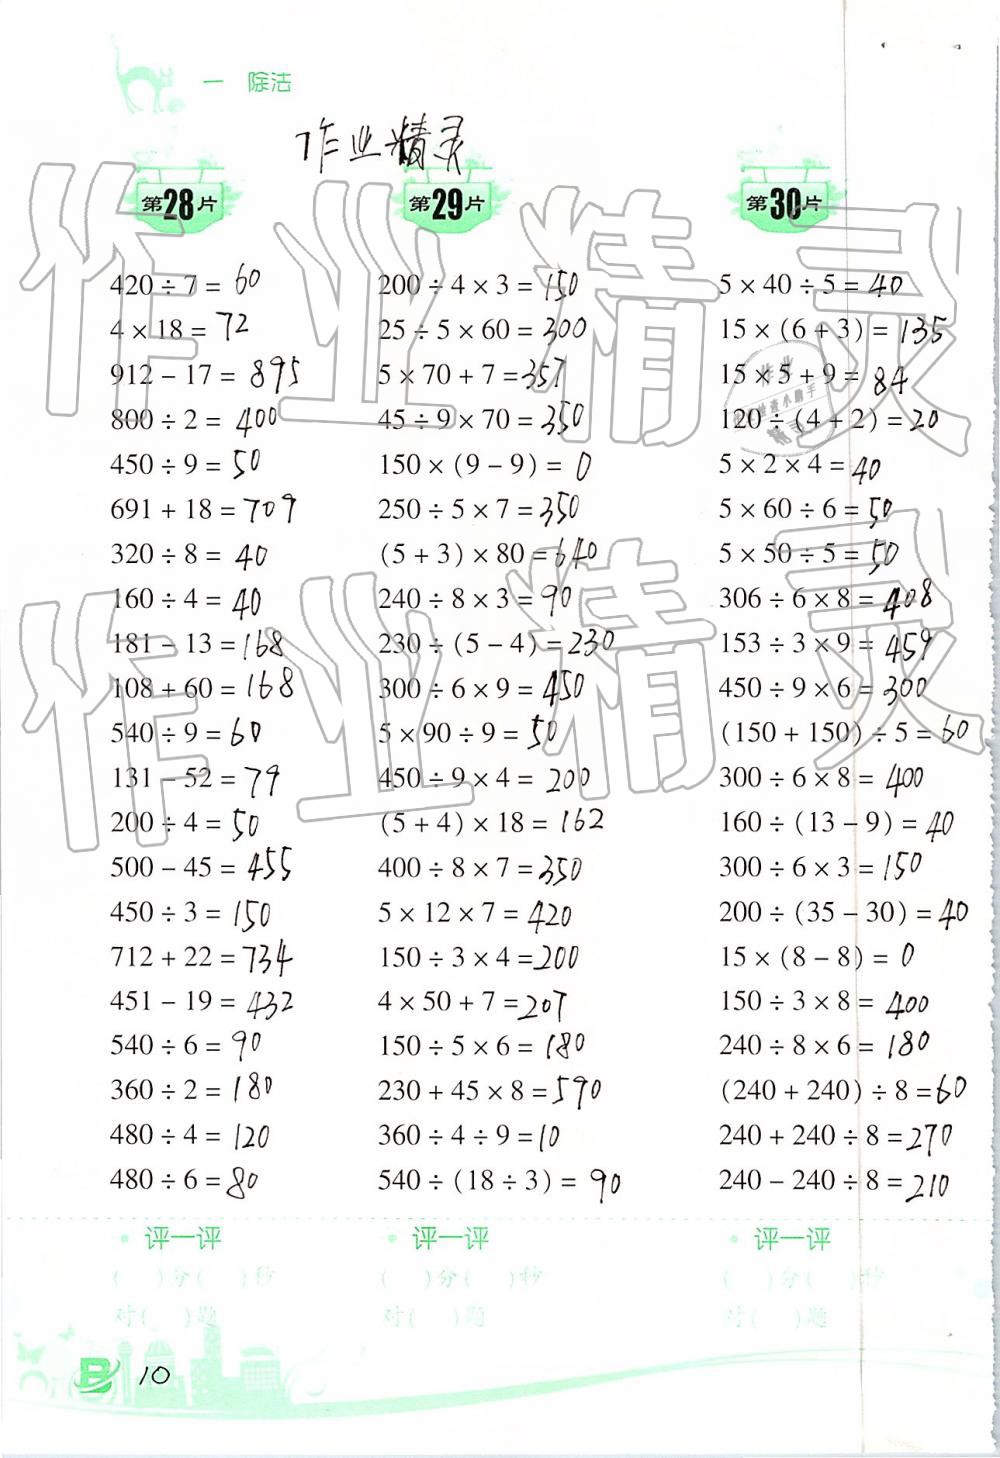 一 除法
作业精灵
第28片
420÷7=60
4×18=72
912-17=895
800÷2=400
450÷9=50
691+18=709
320÷8=40
160÷4=40
181-13=168
108+60=168
540÷9=60
131-52=79
200÷4=50
500-45=455
450÷3=150
712+22=734
451-19=432
540÷6=90
360÷2=180
480÷4=120
480÷6=80
评一评
( )分( )秒
对( )题
第29片
200÷4×3=150
25÷5×60=300
5×70+7=357
45÷9×70=350
150×(9-9)=0
250÷5×7=350
(5+3)×80=640
240÷8×3=90
230÷(5-4)=230
300÷6×9=450
5×90÷9=50
450÷9×4=200
(5+4)×18=162
400÷8×7=350
5×12×7=420
150÷3×4=200
4×50+7=207
150÷5×6=180
230+45×8=590
360÷4÷9=10
540÷(18÷3)=90
评一评
( )分( )秒
对( )题
第30片
5×40÷5=40
15×(6+3)=135
15×5+9=84
120÷(4+2)=20
5×2×4=40
5×60÷6=50
5×50÷5=50
306÷6×8=408
153÷3×9=459
450÷9×6=300
(150+150)÷5=60
300÷6×8=400
160÷(13-9)=40
300÷6×3=150
200÷(35-30)=40
15×(8-8)=0
150÷3×8=400
240÷8×6=180
(240+240)÷8=60
240+240÷8=270
240-240÷8=210
评一评
( )分( )秒
对( )题
作业精灵
作业精灵
B 10